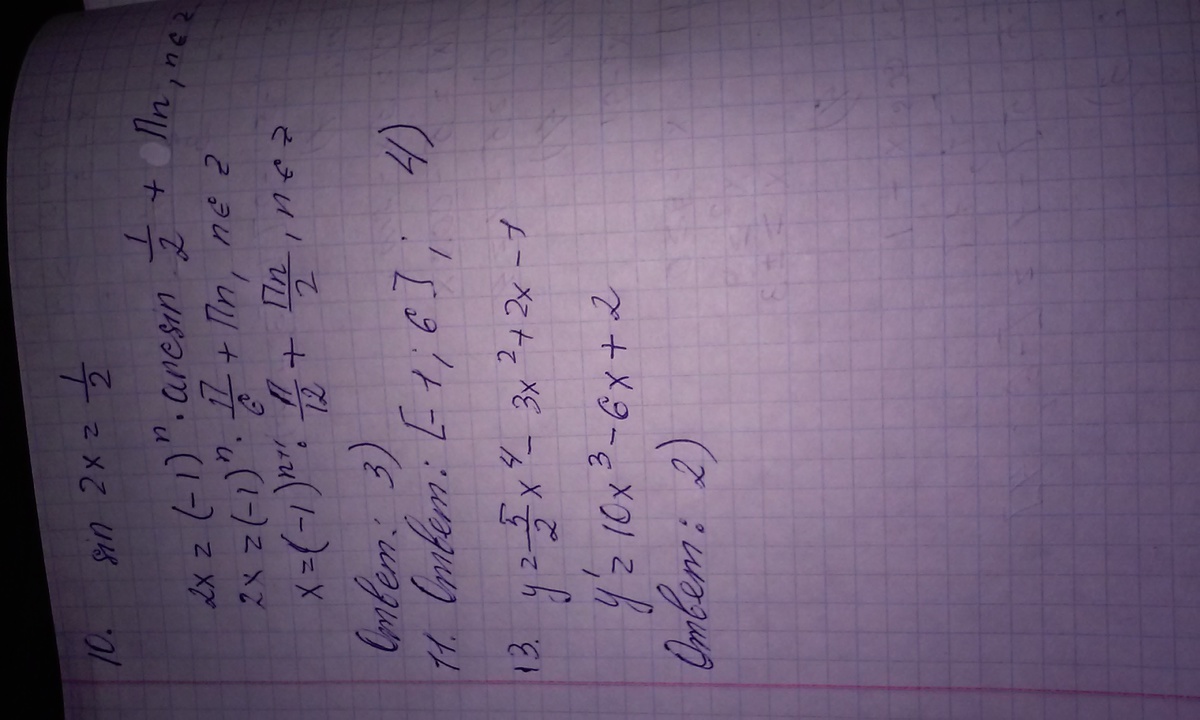 10. sin 2x = 1/2
2x = (-1)^n · arcsin 1/2 + Пn, n є z
2x = (-1)^n · П/6 + Пn, n є z
x = (-1)^n+1 · П/12 + Пn/2, n є z
Ответ: 3)
11. Ответ: [-1; 6]; 4)
13. y = 5/2 x^4 - 3x^2 + 2x - 1
y' = 10x^3 - 6x + 2
Ответ: 2)